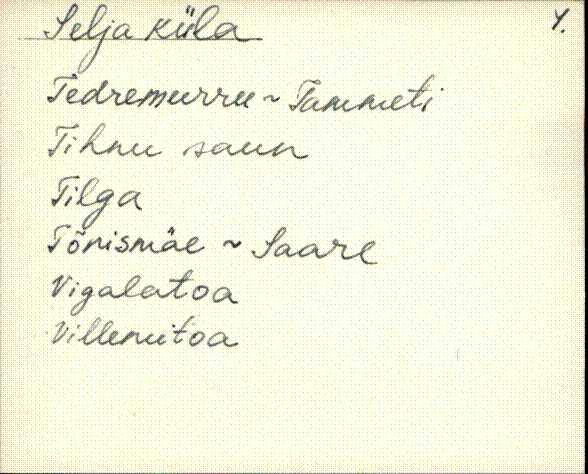 Selja küla 4.
Tedremurru ~ Tammeti
Tihnu saun
Tilga
Tõnismäe ~ Saare
Vigalatoa
Villemitoa